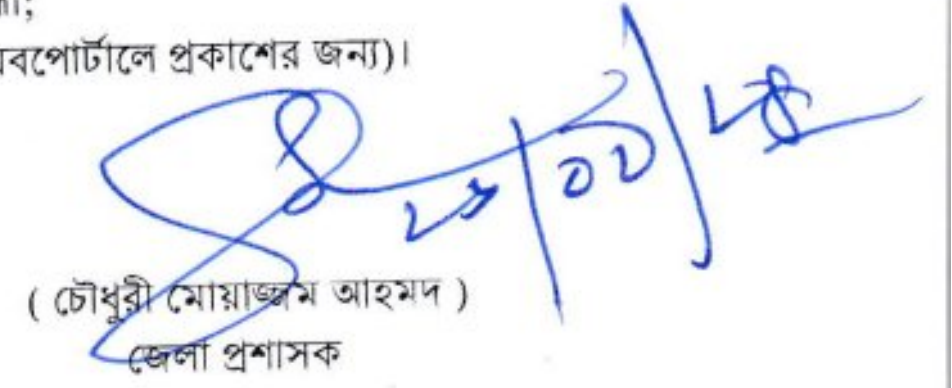 বপোর্টালে প্রকাশের জন্য)।
( চৌধুরী মোয়াজ্জম আহমদ )
জেলা প্রশাসক